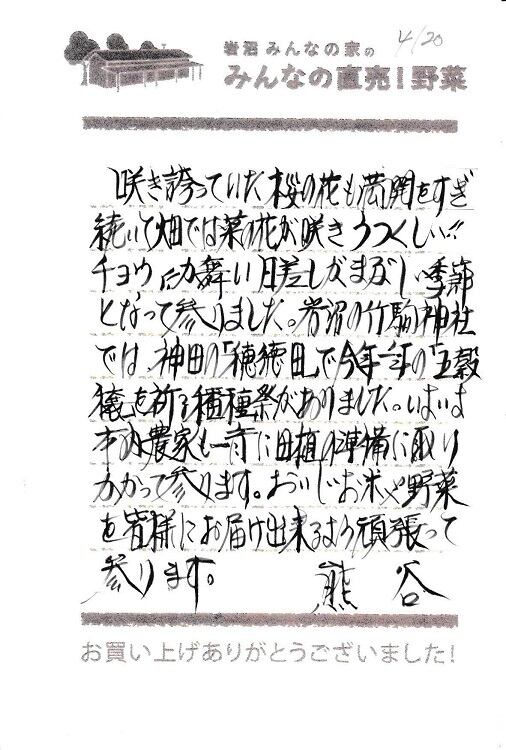 4/20
岩沼 みんなの家の
みんなの直売！野菜
咲き誇っていた桜の花も満開をすぎ
続いて畑では菜の花が咲きうつくしい!!
チョウが舞い日差しがまぶしい季節
となって参りました。岩沼の竹駒神社
では、神田の「穂徳田」で今年一年の「五穀
穣」を祈る播種祭がありました。いよいよ
市内農家も一斉に田植の準備に取り
かかって参ります。おいしいお米や野菜
を皆様にお届け出来るよう頑張って
参ります。 熊谷
お買い上げありがとうございました！